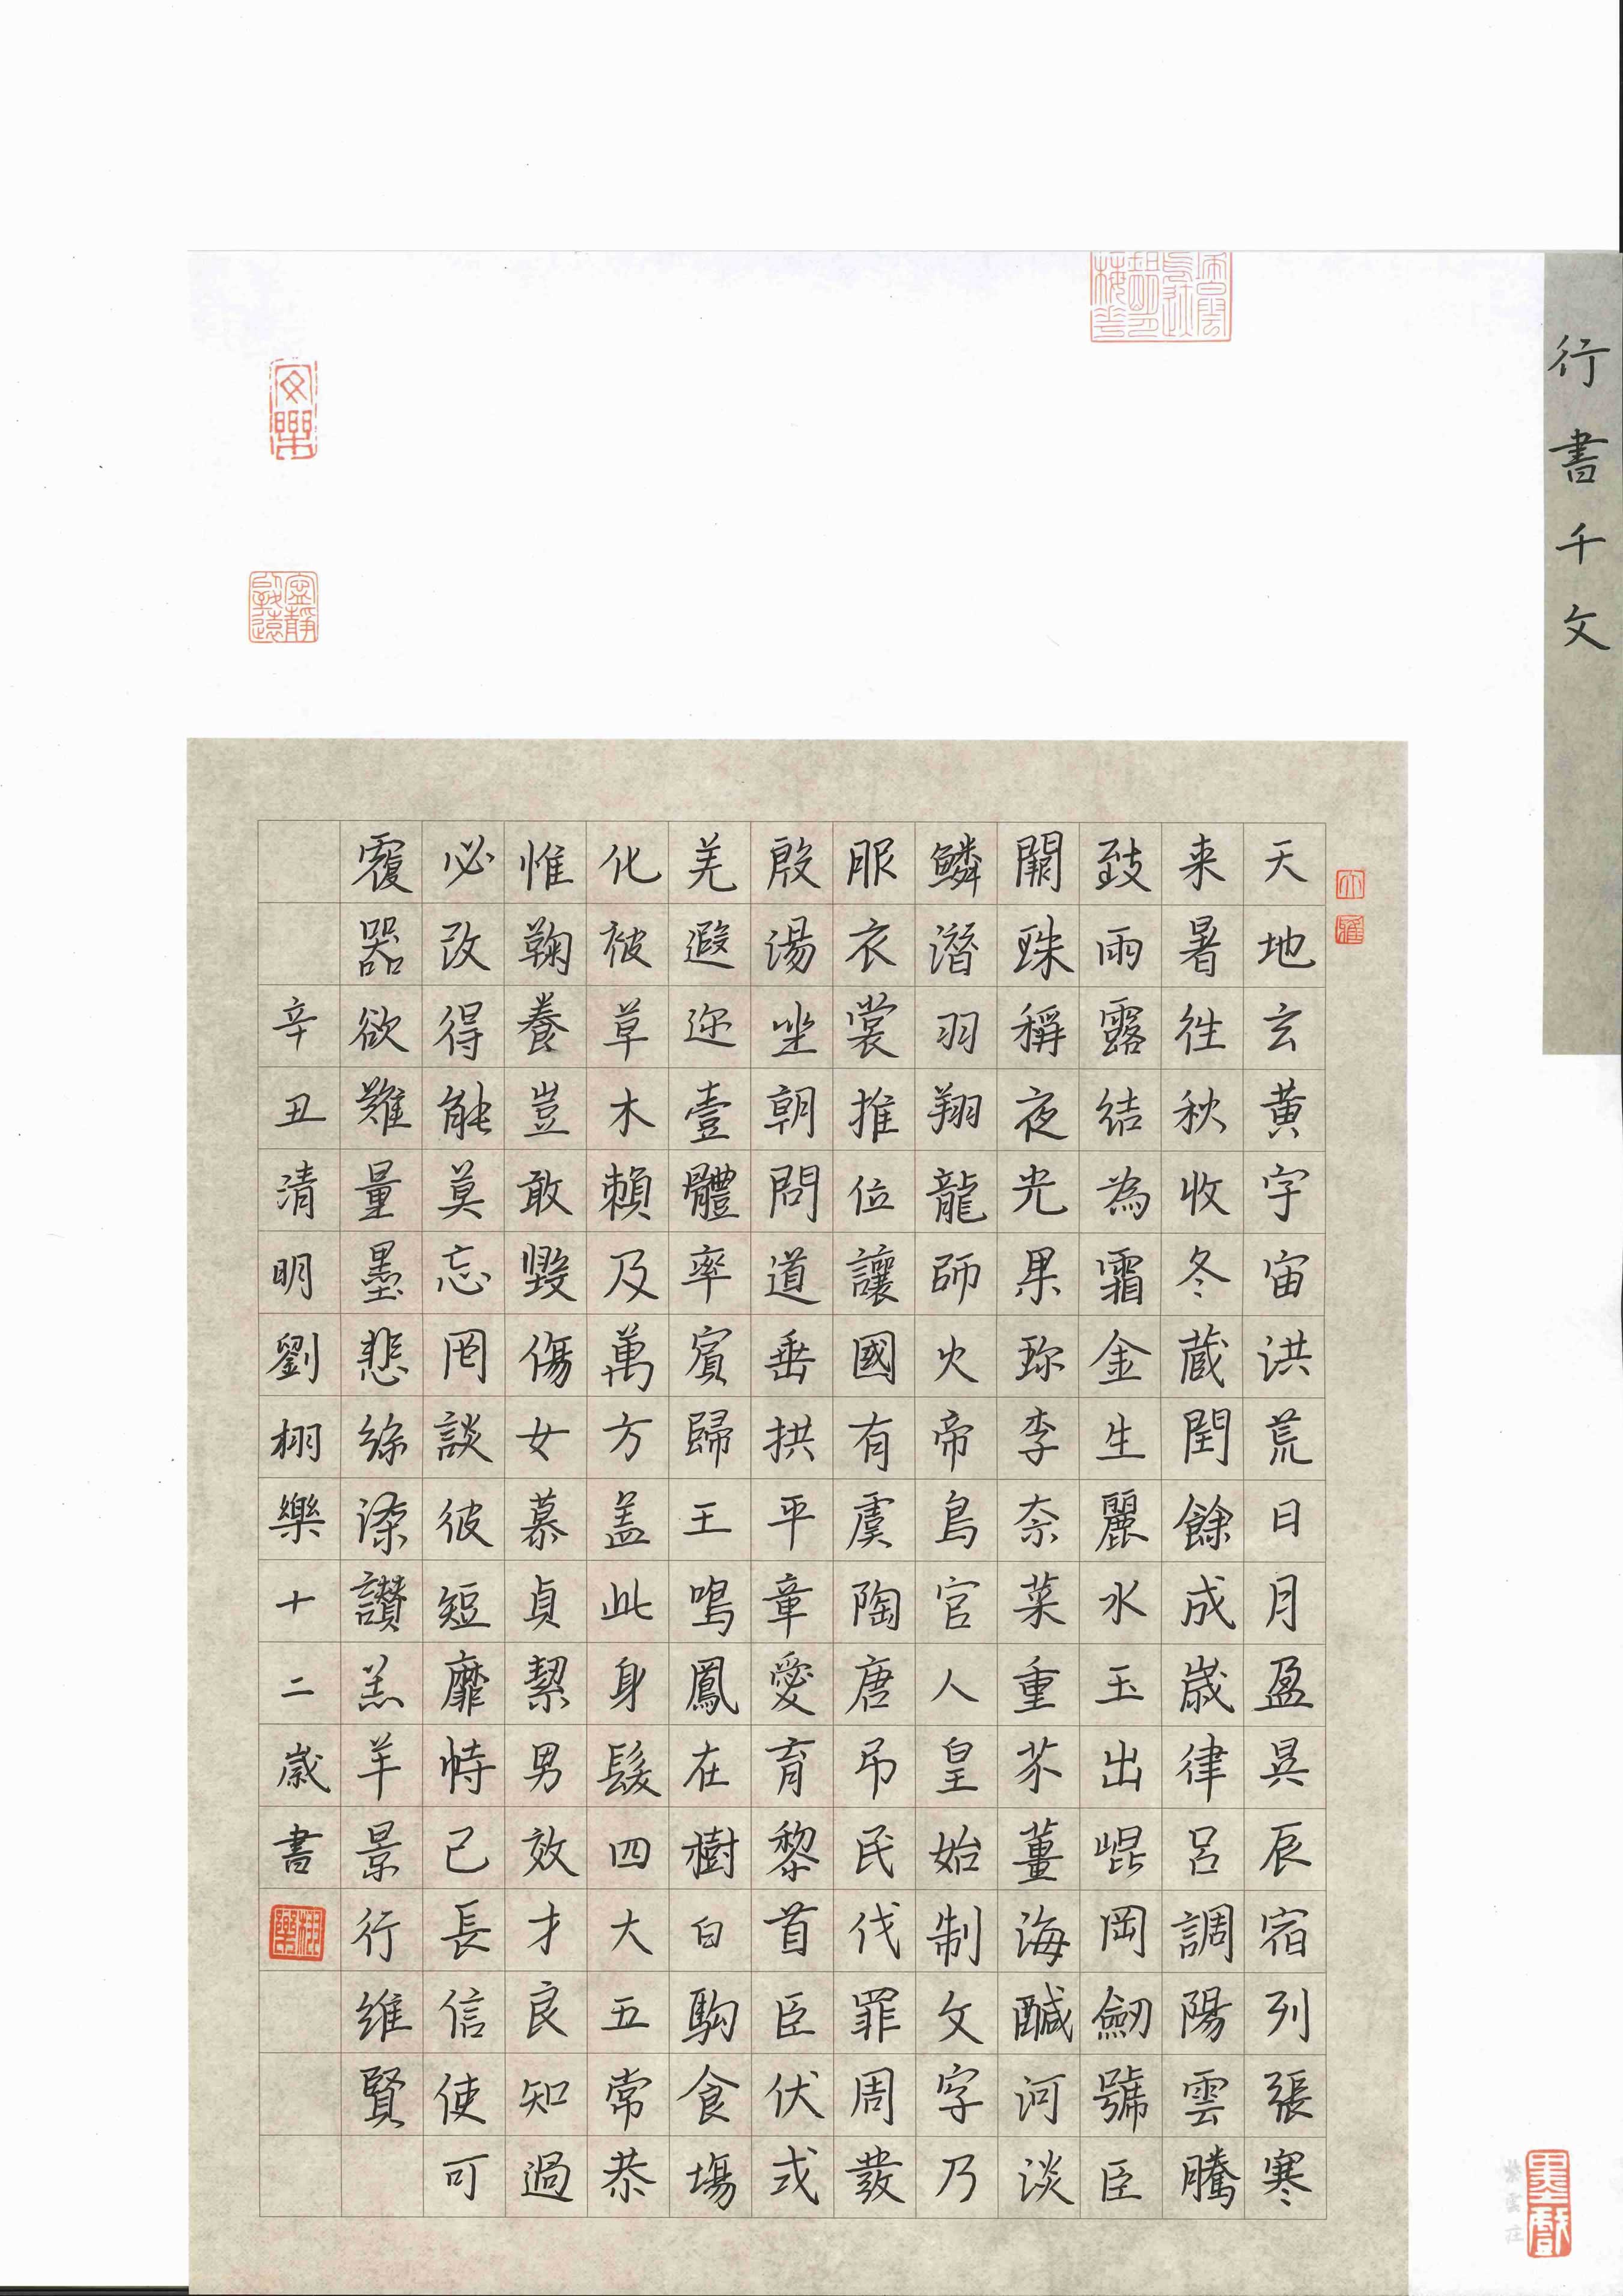 行書千文
大雅
天地玄黃宇宙洪荒日月盈昃辰宿列張寒
来暑往秋收冬蔵閏餘成歲律呂調陽雲騰
致雨露結為霜金生麗水玉出崐岡劒號臣
闕珠稱夜光果珎李柰菜重芥薑海醎河淡
鱗潛羽翔龍師火帝鳥官人皇始制文字乃
服衣裳推位讓國有虞陶唐吊民伐罪周發
殷湯坐朝問道垂拱平章愛育黎首臣伏戎
羌遐迩壹體率賓歸王鳴鳳在樹白駒食場
化被草木賴及萬方盖此身髮四大五常恭
惟鞠養豈敢毀傷女慕貞絜男效才良知過
必改得能莫忘罔談彼短靡恃己長信使可
覆器欲難量墨悲絲染讃羔羊景行維賢
辛丑清明劉栩樂十二歲書
栩樂
安樂
寧靜致遠
墨戲
紫雲莊